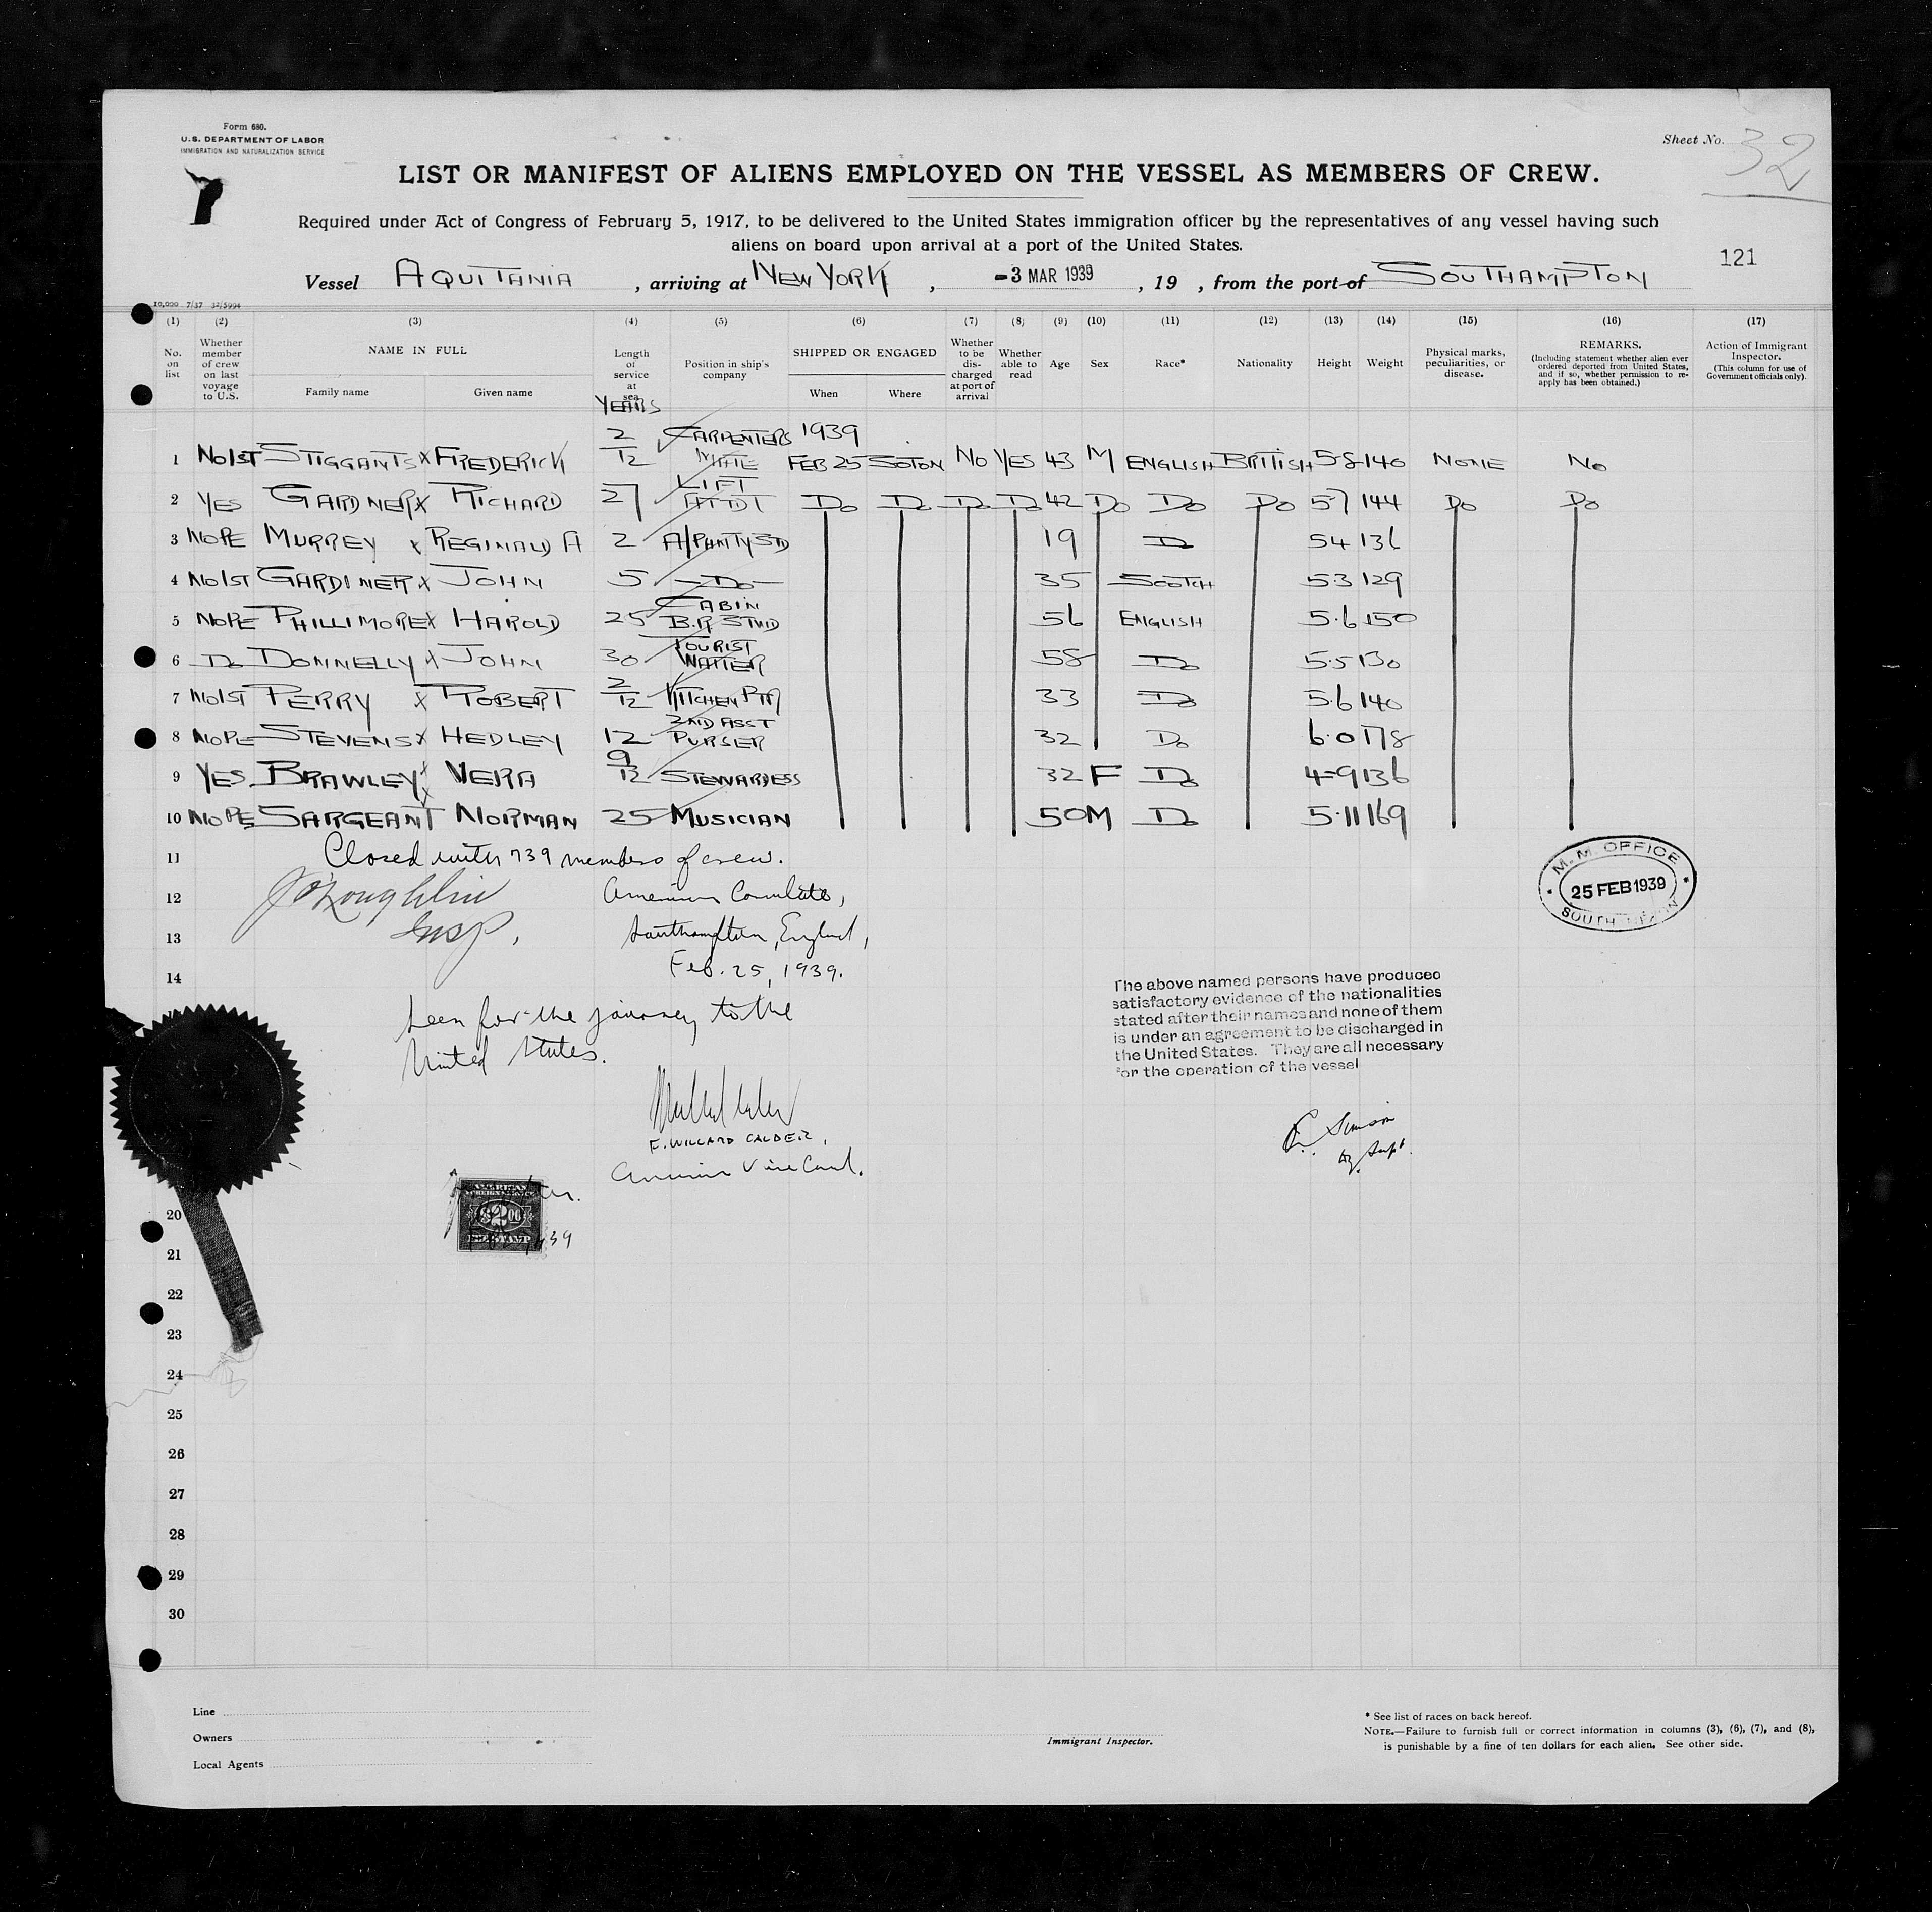 Form 680.
U.S. DEPARTMENT OF LABOR
IMMIGRATION AND NATURALIZATION SERVICE
Sheet No. 32
LIST OR MANIFEST OF ALIENS EMPLOYED ON THE VESSEL AS MEMBERS OF CREW.
Required under Act of Congress of February 5, 1917, to be delivered to the United States immigration officer by the representatives of any vessel having such
aliens on board upon arrival at a port of the United States.
121
Vessel AQUITANIA, arriving at NEW YORK, -3 MAR 1939, 19 , from the port of SOUTHAMPTON
10,000 7/37 32/5994
(1) (2) (3) (4) (5) (6) (7) (8) (9) (10) (11) (12) (13) (14) (15) (16) (17)
No. on list
Whether member of crew on last voyage to U.S.
NAME IN FULL
Family name Given name
Length of service at sea
YEARS
Position in ship's company
SHIPPED OR ENGAGED
When Where
Whether to be discharged at port of arrival
Whether able to read
Age
Sex
Race*
Nationality
Height
Weight
Physical marks, peculiarities, or disease.
REMARKS.
(Including statement whether alien ever ordered deported from United States, and if so, whether permission to re-apply has been obtained.)
Action of Immigrant Inspector.
(This column for use of Government officials only).
1 NO1ST STIGGANTS x FREDERICK 2/12 CARPENTERS MATE 1939 FEB 25 SOTON NO YES 43 M ENGLISH BRITISH 5-8 140 NONE NO
2 YES GARDNER x RICHARD 27 LIFT ATTDT DO DO DO DO 42 DO DO DO 5-7 144 DO DO
3 NOPE MURREY x REGINALD A 2 A/PANTYSTD 19 DO 54 136
4 NO1ST GARDINER x JOHN 5 -DO- 35 SCOTCH 5.3 129
5 NOPE PHILLIMORE x HAROLD 25 CABIN B.R. STWD 56 ENGLISH 5.6 150
6 DO DONNELLY x JOHN 30 TOURIST WAITER 58 DO 5.5 130
7 NO1ST PERRY x ROBERT 2/12 KITCHEN PTR 33 DO 5.6 140
8 NOPE STEVENS x HEDLEY 12 2ND ASST PURSER 32 DO 6.0 178
9 YES BRAWLEY x VERA 9/12 STEWARDESS 32 F DO 4-9 136
10 NOPE SARGEANT x NORMAN 25 MUSICIAN 50 M DO 5.11 169
11 Closed with 739 members of crew.
12 J O'Loughlin American Consulate,
13 Insp, Southampton, England,
14 Feb. 25, 1939.
M. M. OFFICE
25 FEB 1939
SOUTHAMPTON
The above named persons have produced
satisfactory evidence of the nationalities
stated after their names and none of them
is under an agreement to be discharged in
the United States. They are all necessary
for the operation of the vessel
Seen for the journey to the
United States.
F. WILLARD CALDER,
American Vice Consul.
Dy. Supt.
AMERICAN
FOREIGN SERVICE
$2.00
FEE STAMP
20
21
22
23
24
25
26
27
28
29
30
Line
Owners
Local Agents
Immigrant Inspector.
* See list of races on back hereof.
NOTE.—Failure to furnish full or correct information in columns (3), (6), (7), and (8),
is punishable by a fine of ten dollars for each alien. See other side.